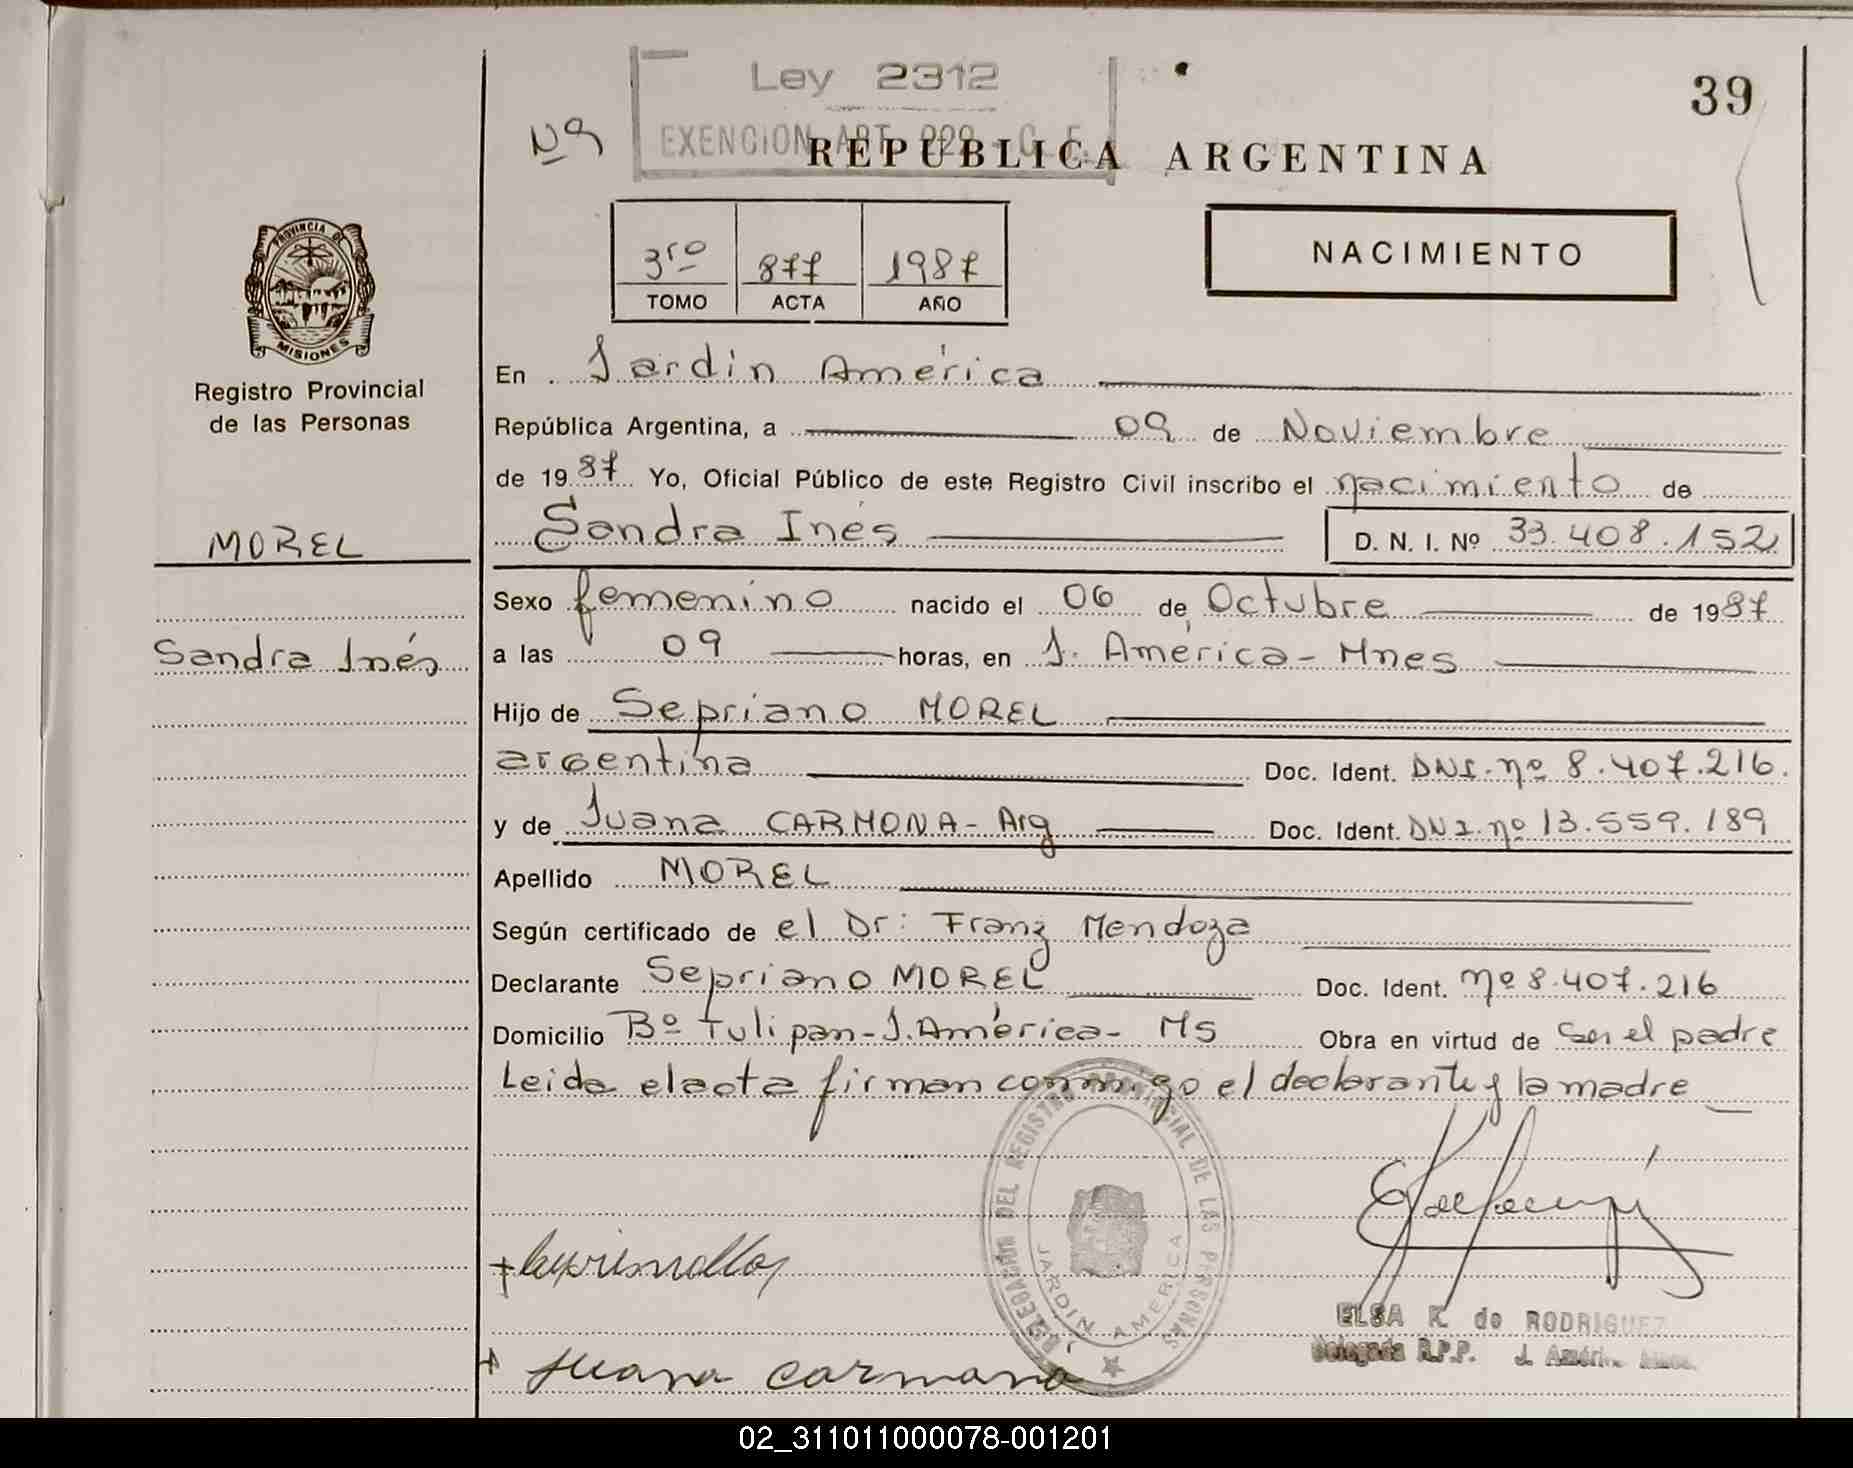 Ley 2312
39
Nº
EXENCION ART. 229 C. F.
REPUBLICA ARGENTINA
3ro 877 1987
TOMO ACTA AÑO
NACIMIENTO
PROVINCIA DE
MISIONES
Registro Provincial
de las Personas
En Jardin América
República Argentina, a 09 de Noviembre
de 1987 Yo, Oficial Público de este Registro Civil inscribo el nacimiento de
MOREL
Sandra Inés D. N. I. Nº 33.408.152
Sexo femenino nacido el 06 de Octubre de 1987
Sandra Inés
a las 09 horas, en J. América - Mnes
Hijo de Sepriano MOREL
argentina Doc. Ident. DNI. nº 8.407.216.
y de Juana CARMONA - Arg Doc. Ident. DNI. nº 13.559.189
Apellido MOREL
Según certificado de el Dr: Franz Mendoza
Declarante Sepriano MOREL Doc. Ident. nº 8.407.216
Domicilio Bº Tulipan - J. América - Ms Obra en virtud de ser el padre
Leida el acta firman conmigo el declarante y la madre
DELEGACIÓN DEL REGISTRO PROVINCIAL DE LAS PERSONAS
JARDIN AMERICA
ELSA K. de RODRIGUEZ
Delegada R.P.P. J. América
+ Juana Carmona
02_311011000078-001201